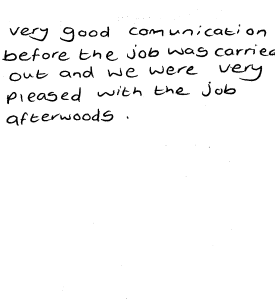 very good comunication
before the job was carried
out and we were very
pleased with the job
afterwoods .